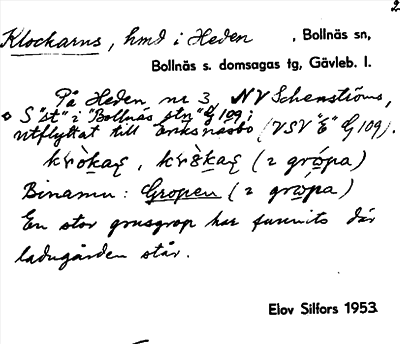 2
Klockarns, hmd i Heden , Bollnäs sn,
Bollnäs s. domsagas tg, Gävleb. l.
På Heden nr 3 NV Schenströms,
S "st" i "Bollnäs stn" G 109;
utflyttat till Eriksnäsbo (VSV "E" G 109).
(2 grópa)
Binamn: Gropen (2 grópa)
En stor grusgrop har funnits där
ladugården står.
Elov Silfors 1953